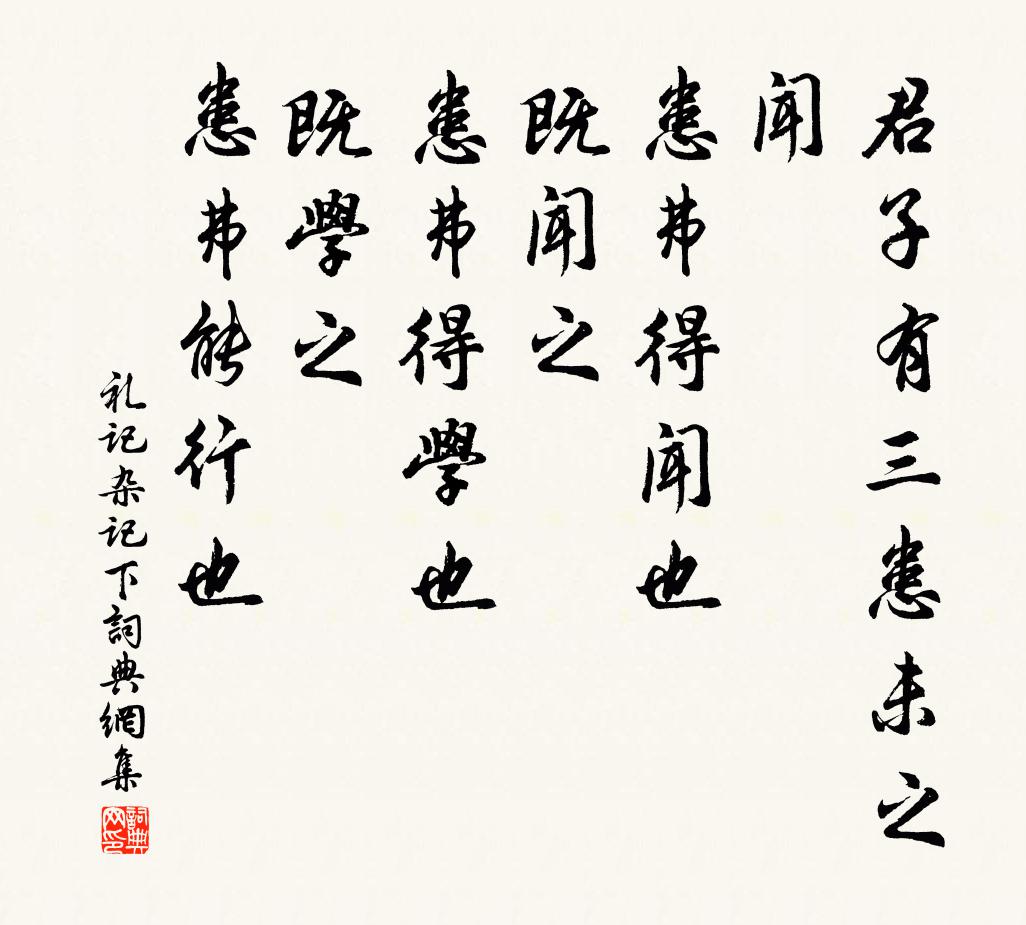 君子有三患未之
聞
患弗得聞也
既聞之
患弗得學也
既學之
患弗能行也
礼记杂记下詞典網集
詞典网印